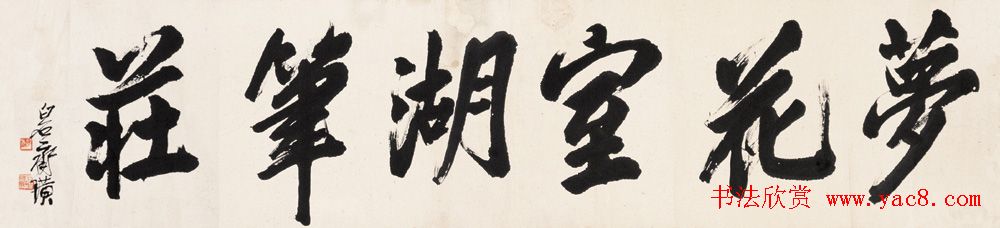 夢花室湖筆莊
白石齊璜
书法欣赏 www.yac8.com